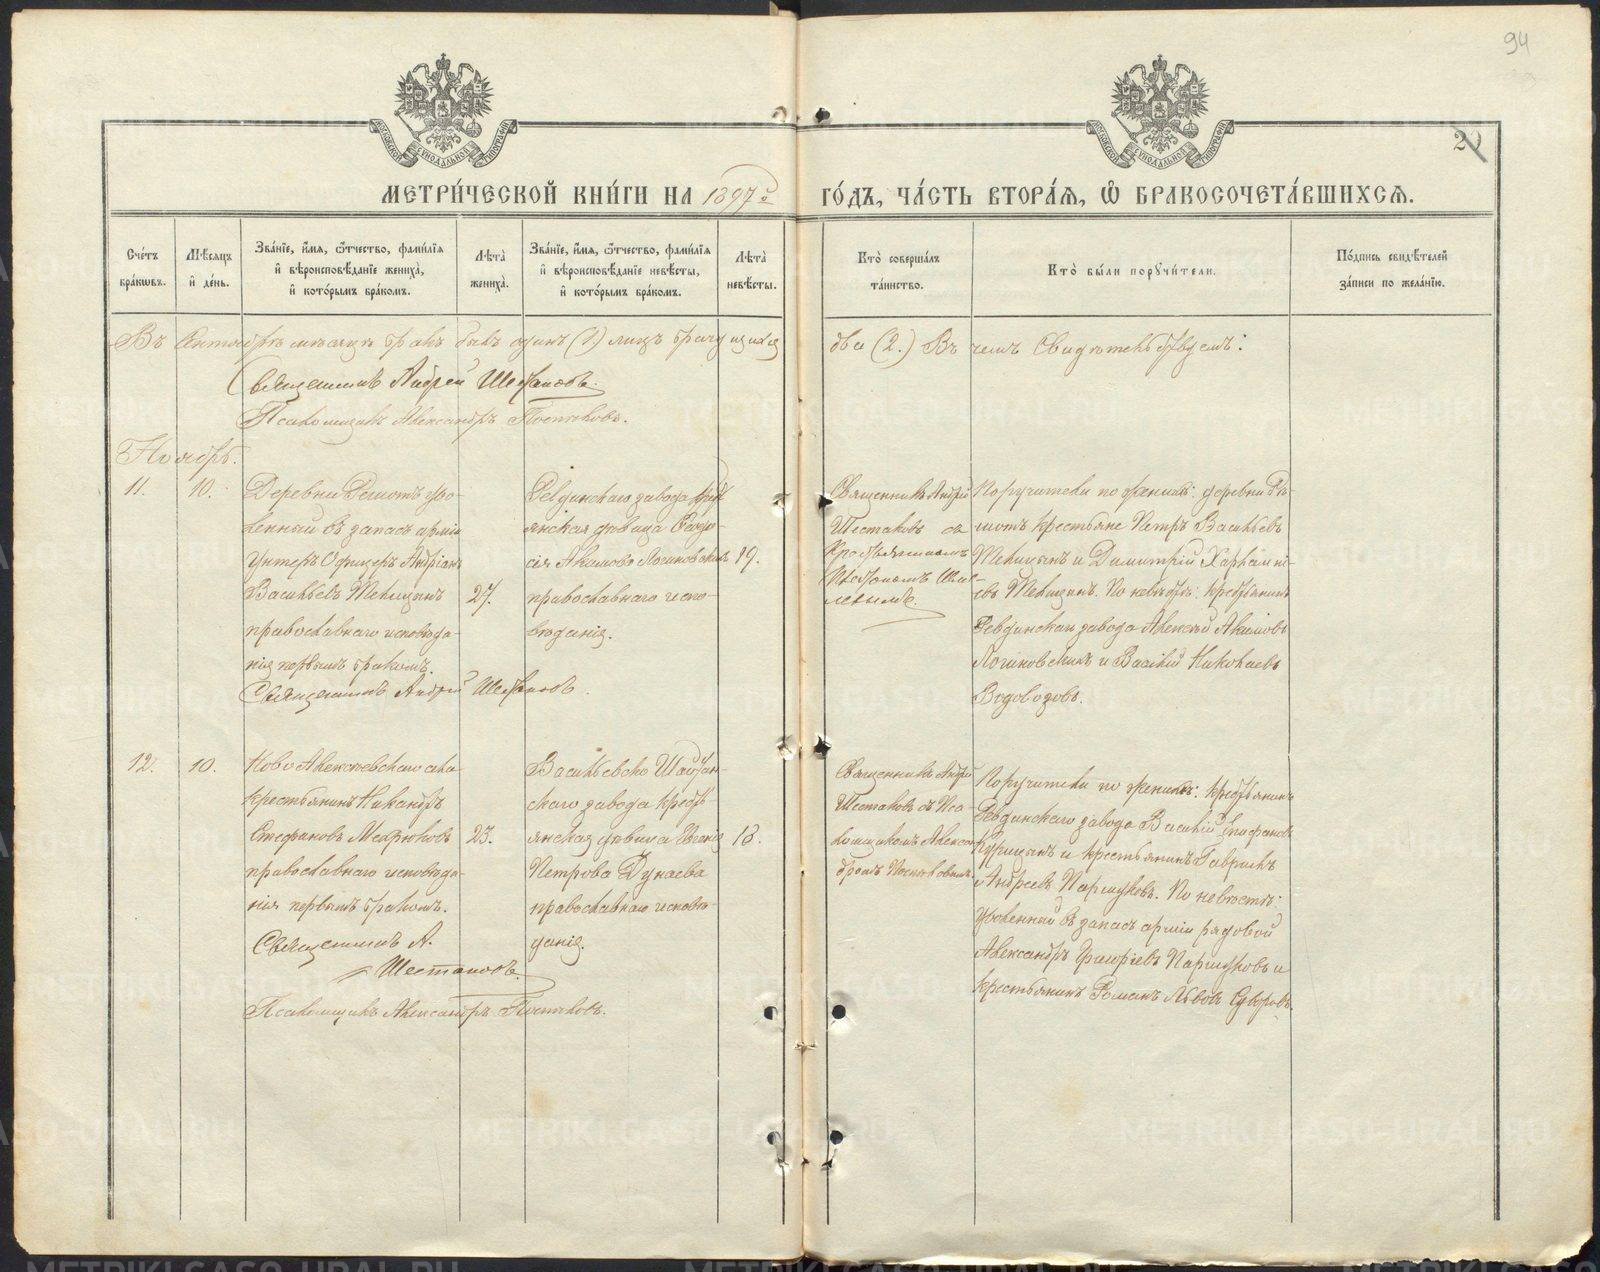 94
20
МОСКОВСКОЙ СѴНОДАЛЬНОЙ ТИПОГРАФІИ
МОСКОВСКОЙ СѴНОДАЛЬНОЙ ТИПОГРАФІИ
МЕТРИ́ЧЕСКОЙ КНИ́ГИ НА 1897й ГО́ДЪ, ЧА́СТЬ ВТОРА́Ѧ, Ѽ БРАКОСОЧЕТА́ВШИХСѦ.
Сче́тъ бра́кѡвъ.
Мѣ́сяцъ и҆ де́нь.
Зва́нїе, и҆́мѧ, ѻ҆́тчество, фами́лїѧ и҆ вѣроисповѣ́данїе жениха̀, и҆ кото́рымъ бра́комъ.
Лѣ́та жениха̀.
Зва́нїе, и҆́мѧ, ѻ҆́тчество, фами́лїѧ и҆ вѣроисповѣ́данїе невѣ́сты, и҆ кото́рымъ бра́комъ.
Лѣ́та невѣ́сты.
Кто̀ соверша́лъ та́инство.
Кто̀ бы́ли порꙋчи́тели.
По́дпись свидѣ́телей за́писи по жела́нїю.
Въ Октябрѣ мѣсяцѣ бракъ былъ одинъ (1) лицъ брачущихся два (2.) Въ чемъ Свидѣтельствуемъ:
Священникъ Андрей Шестаковъ.
Псаломщикъ Александръ Постниковъ.
Ноябрь.
11.
10.
Деревни Решотъ уво-
ленный въ запасъ арміи
Унтеръ Офицеръ Андріанъ
Васильевъ Телицынъ
православнаго исповѣда-
нія первымъ бракомъ.
Священникъ Андрей Шестаковъ.
27.
Ревдинскаго завода крест
янская дѣвица Ѳеодо-
сія Акимова Логиновскихъ
православнаго испо-
вѣданія.
19.
Священникъ Андрей
Шестаковъ съ
Крестьяниномъ
Поручители по женихѣ: деревни Рѣ-
шотъ крестьяне Петръ Васильевъ
Телицынъ и Димитрій Харлампі-
евъ Телицынъ. По невѣстѣ: крестьянинъ
Ревдинскаго завода Алексѣй Акимовъ
Логиновскихъ и Василій Николаевъ
Водовозовъ.
12.
10.
Ново Алексѣевскаго села
крестьянинъ Никандръ
Стефановъ Мехрюковъ
православнаго исповѣда-
нія первымъ бракомъ.
Священникъ А.
Шестаковъ.
Псаломщикъ Александръ Постниковъ.
23.
Васильевско Шайтан-
скаго завода кресть-
янская дѣвица Евгенія
Петрова Дунаева
православнаго исповѣ-
данія.
18.
Священникъ Андрей
Шестаковъ съ Пса-
ломщикомъ Алексан
дромъ Постниковымъ.
Поручители по женихѣ: крестьянинъ
Ревдинскаго завода Василій Епифановъ
Курицынъ и крестьянинъ Гавріилъ
Андреевъ Паршуковъ. По невѣстѣ:
Уволенный въ запасъ арміи рядовой
Александръ Григоріевъ Паршуковъ и
крестьянинъ Романъ Львовъ Суворовъ.
METRIKI.GASO-URAL.RU